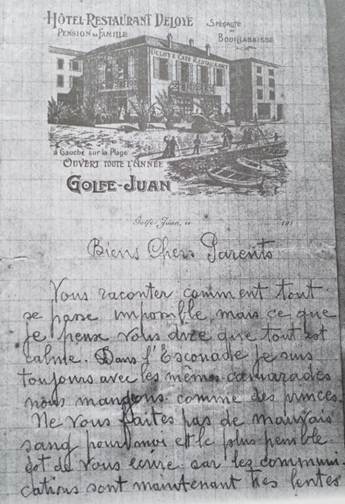 HÔTEL-RESTAURANT DELOYE
PENSION DE FAMILLE
SPÉCIALITÉ
DE
BOUILLABAISSE
DELOYE CAFÉ RESTAURANT
à Gauche sur la Plage
OUVERT TOUTE L'ANNÉE
GOLFE-JUAN
Golfe-Juan, le 191
Biens Chers Parents
Vous raconter comment tout
se passe impossible mais ce que
je peux vous dire que tout est
calme. Dans l'Esconade je suis
toujours avec les mêmes camarades
nous mangeons comme des princes.
Ne vous faites pas de mauvais
sang pour moi et le plus penible
est de vous ecrire car les communi-
cations sont maintenant tres lentes